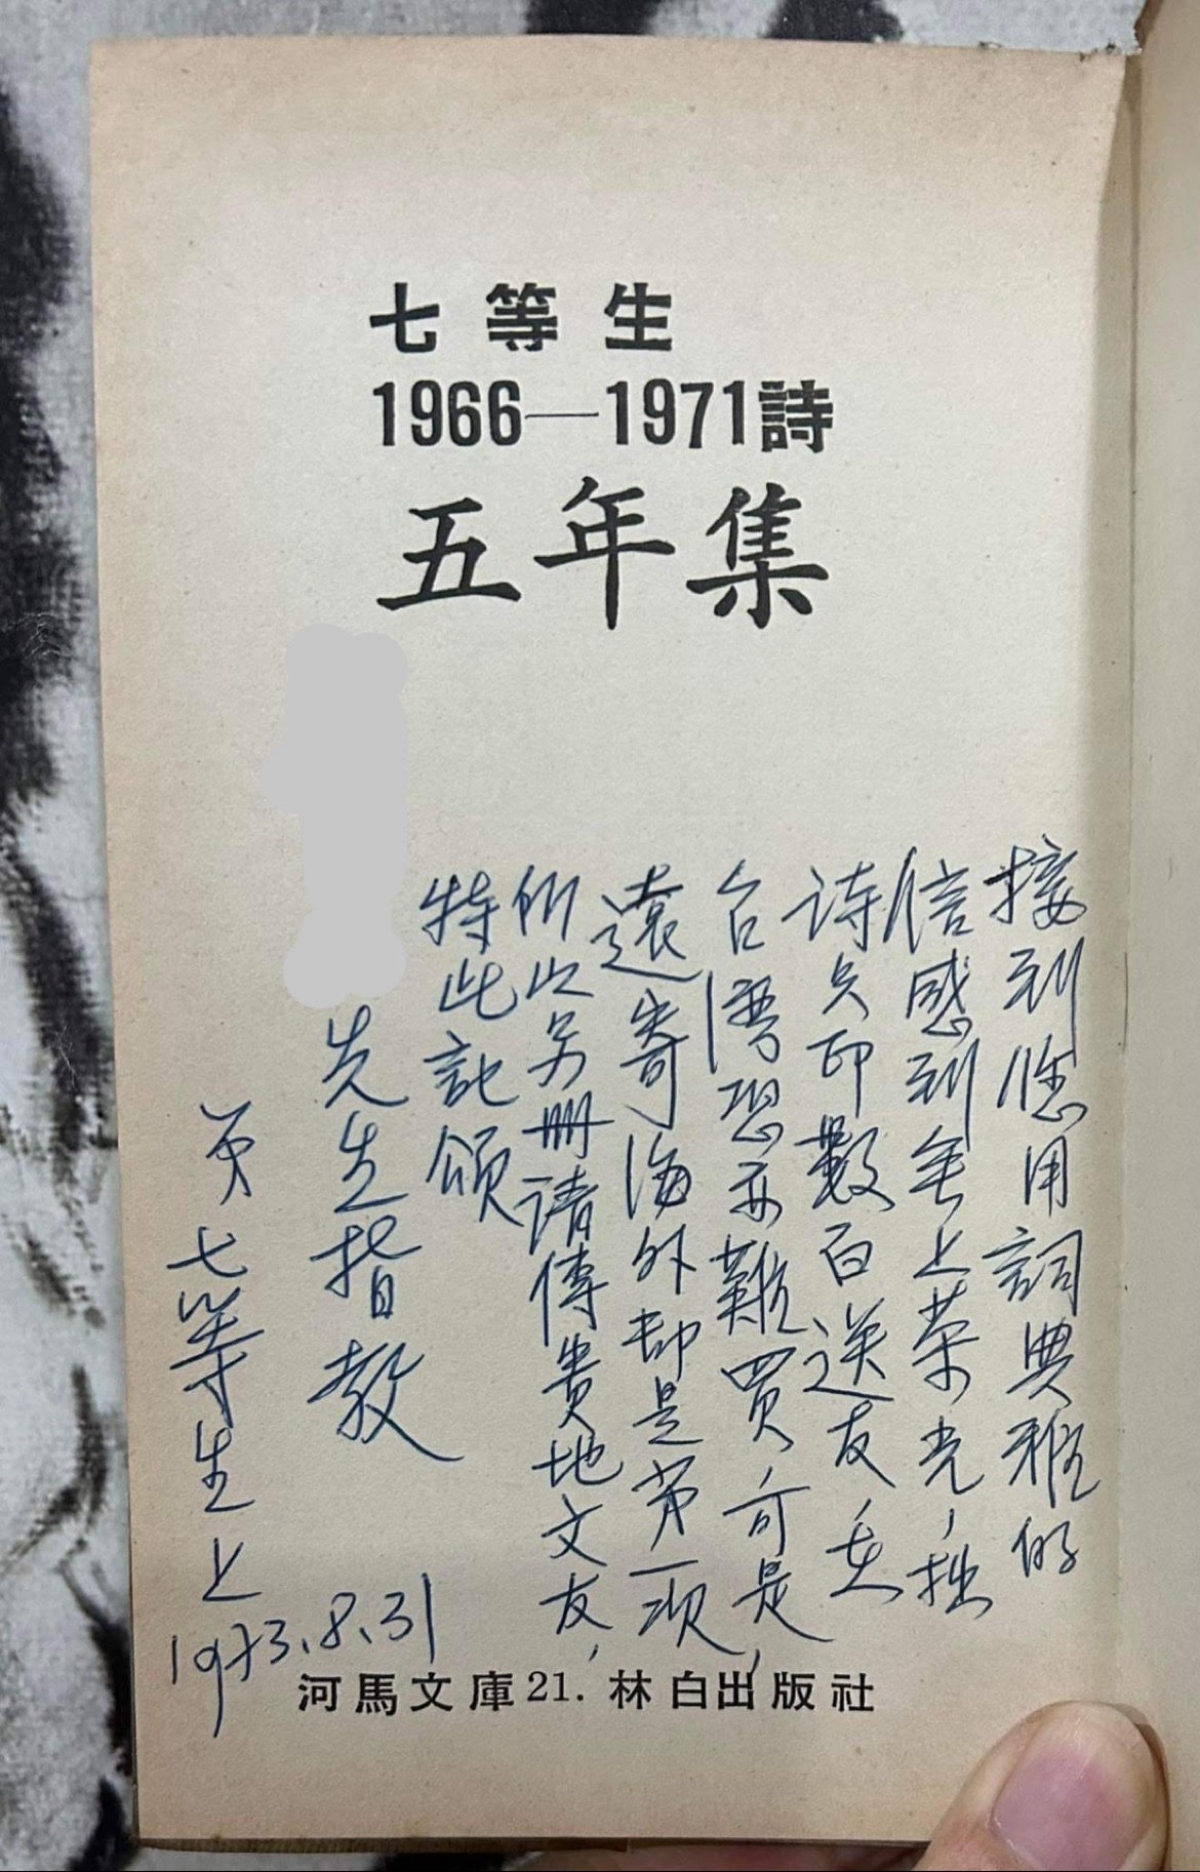 七等生
1966—1971詩
五年集
接到您用詞典雅的
信感到無上荣光，拙
诗只印數百送友，在
台灣恐亦難買，可是，
遠寄海外却是第一次，
所以另册请傳贵地文友，
特此託頌
先生指教
弟七等生上
1973.8.31
河馬文庫21.林白出版社